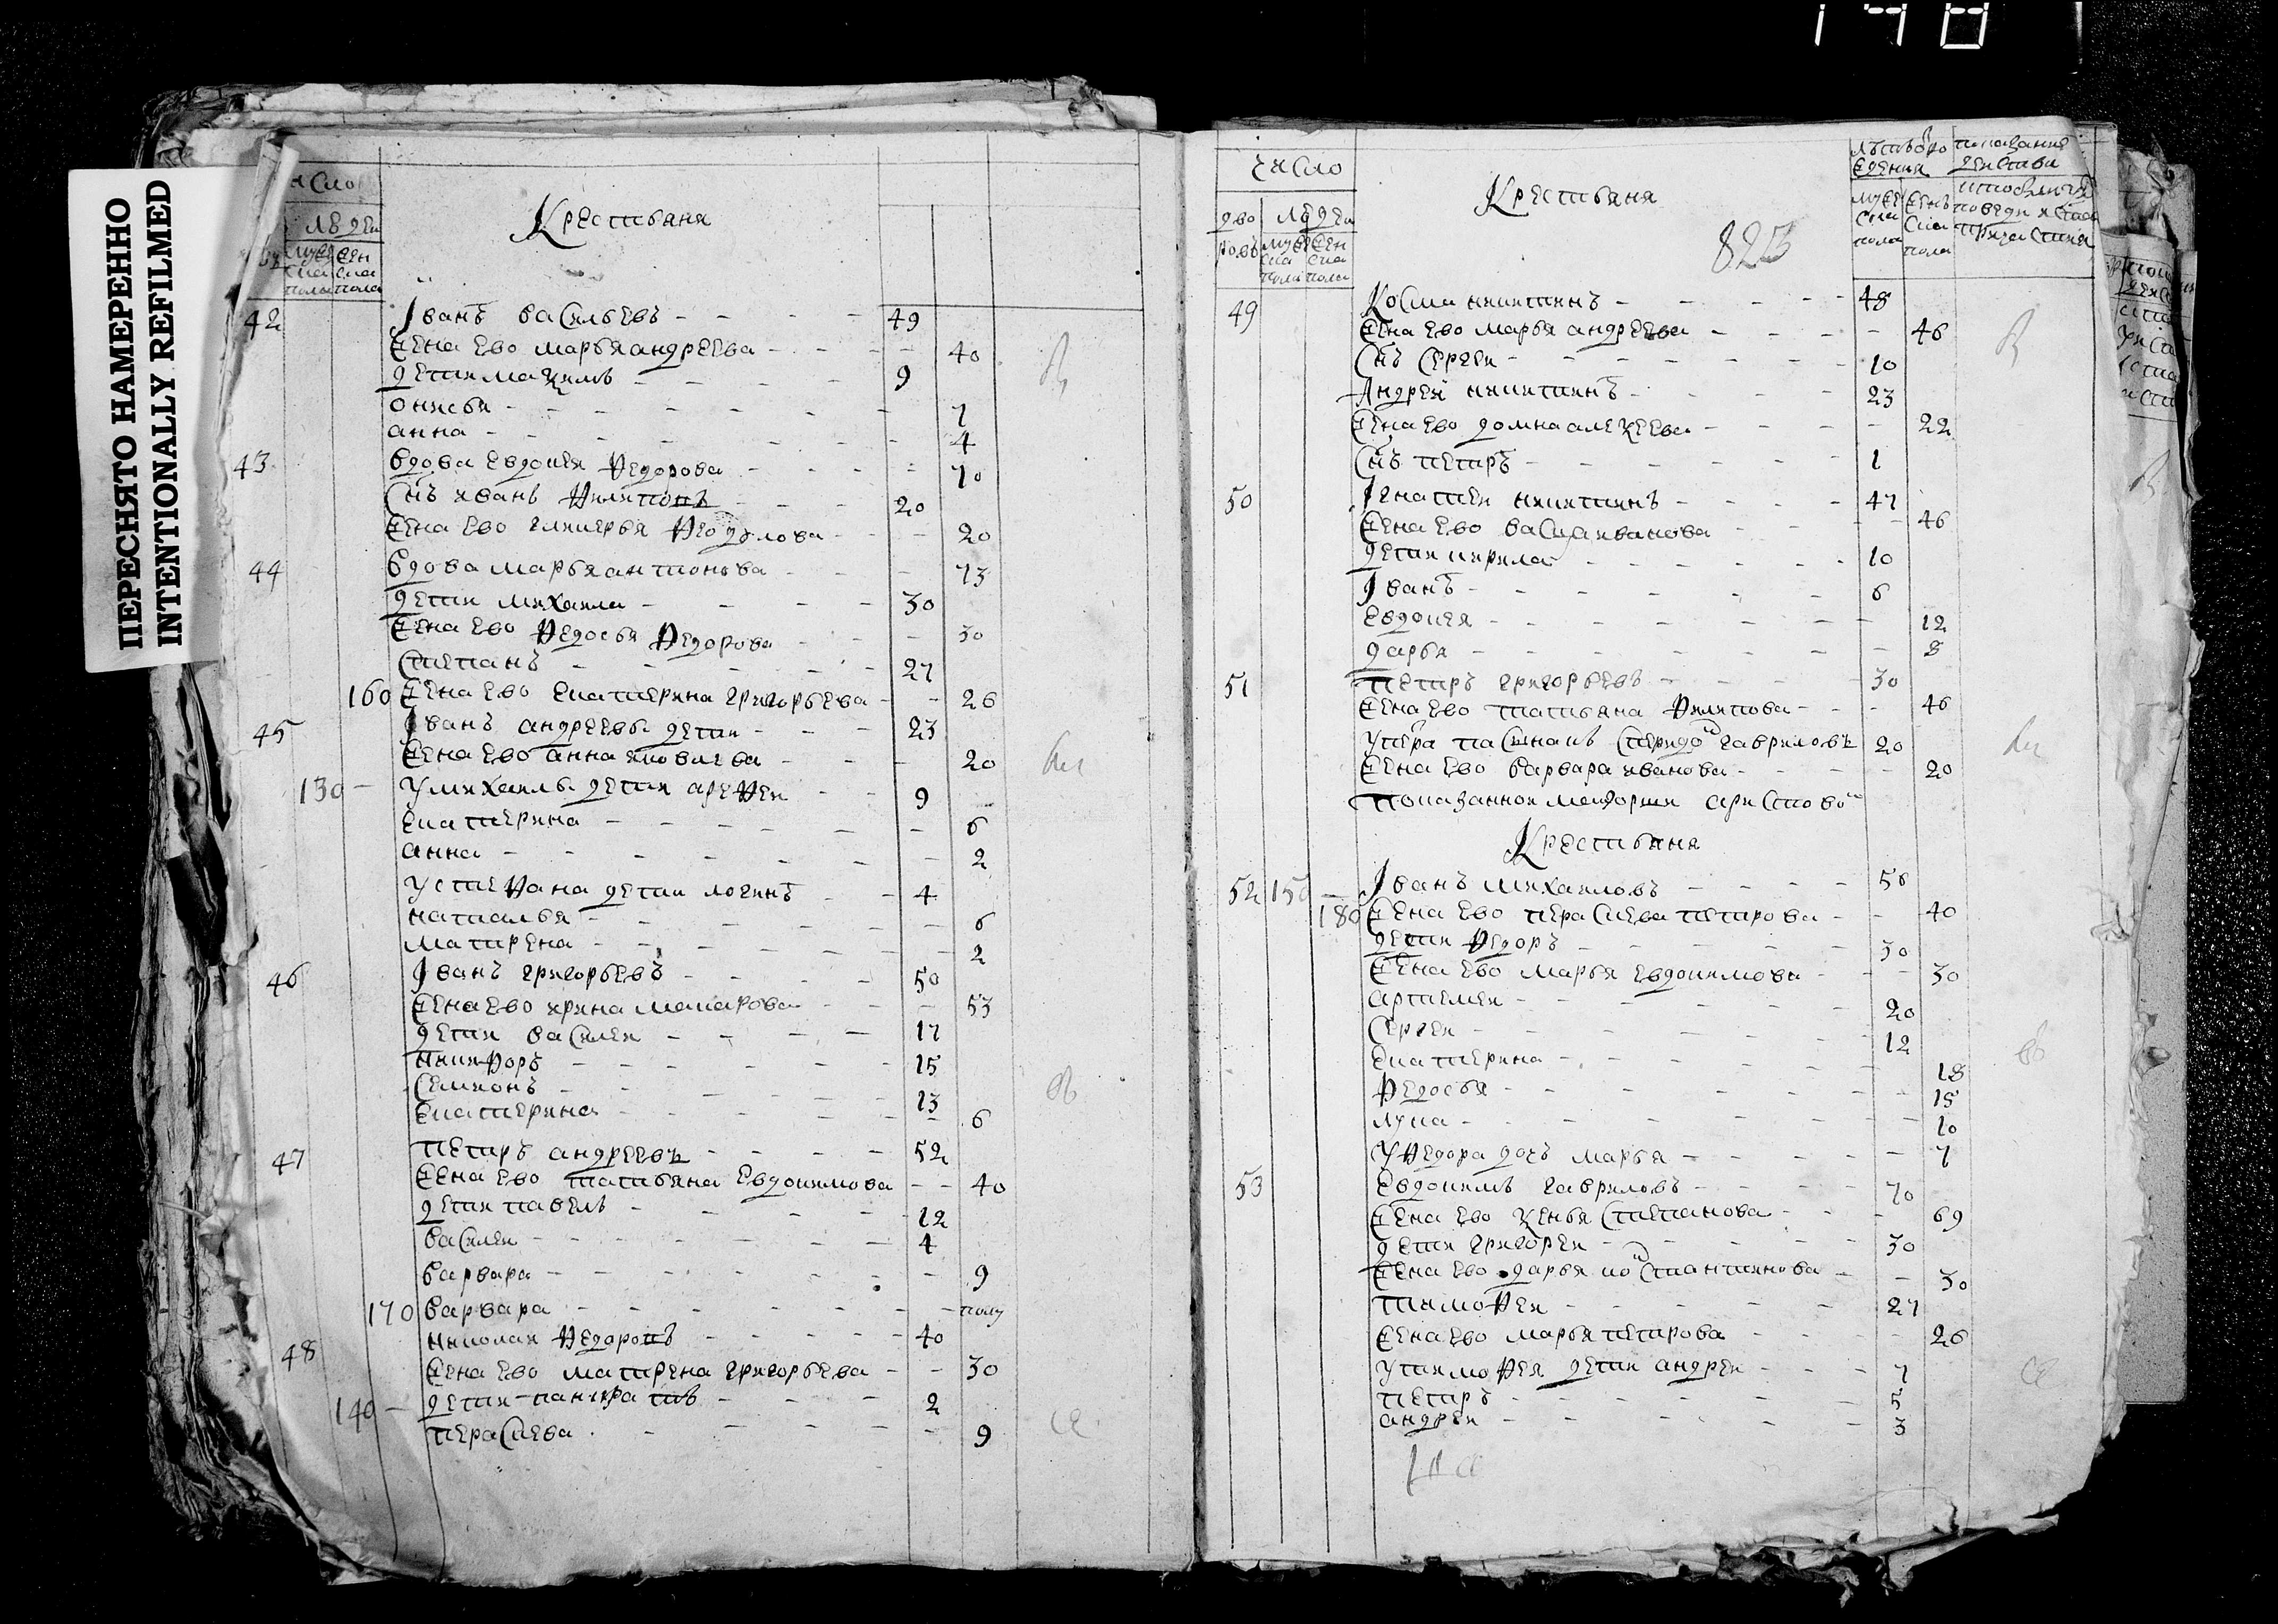 198
ПЕРЕСНЯТО НАМЕРЕННО
INTENTIONALLY REFILMED
число
людеи
мужеска пола
женска пола
Крестьяня
42 Іванъ васильевъ - - - 49
жена ево марья андреева - - - 40
дети маѯимъ - - - 9
онисья - - - 7
анна - - - 4
43 вдова евдокея Ѳедорова - - - 70
снъ иванъ Ѳилипопъ - - - 20
жена ево гликерья - - - 20
44 вдова марья антонова - - - 73
дети михаила - - - 30
жена ево Ѳедосья Ѳедорова - - - 30
степанъ - - - 27
160 жена ево екатерина григорьева - - 26
45 Іванъ андреевъ дети - - - 23
жена ево анна яковлева - - - 20
130 - у михаилы дети ареѲеи - - 9
екатерина - - - 6
анна - - - 2
у степана дети логинъ - 4
наталья - - - 6
матрена - - - 2
46 Іванъ григорьевъ - - - 50
жена ево ирина макарова - - - 53
дети василеи - - - 17
никиѲоръ - - - 15
семионъ - - - 13
екатерина - - - 6
47 петръ андреевъ - - - 52
жена ево татьяна евдокимова - - 40
дети павелъ - - - 12
василеи - - - 4
варвара - - - 9
170 варвара - - - полу
48 николаи Ѳедоровъ - - - 40
жена ево матрена григорьева - - 30
140 - дети панкратъ - - - 2
пераскева - - - 9
число
дворовъ
людеи
мужеска пола
женска пола
Крестьяня
823
мужеска пола
женска пола
49 Косма никитинъ - - - 48
жена ево марья андреева - - - 46
снъ сергеи - - - 10
Андреи никитинъ - - - 23
жена ево домна алеѯеева - - - 22
снъ петръ - - - 1
50 Ігнатеи никитинъ - - - 47
жена ево васса иванова - - - 46
дети кирила - - - 10
Іванъ - - - 6
евдокея - - - 12
дарья - - - 8
51 петръ григорьевъ - - - 30
жена ево татьяна Ѳилипова - - - 46
у петра пасынакъ спиридо гавриловъ 20
жена ево варвара иванова - - - 20
Крестьяня
52 150 - Іванъ михаиловъ - - - 50
180 жена ево пераскева петрова - - 40
дети Ѳедоръ - - - 30
жена ево марья евдокимова - - - 30
артемеи - - - 20
сергеи - - - 12
екатерина - - - 18
Ѳедосья - - - 15
лука - - - 10
у Ѳедора дочъ марья - - - 7
53 евдокимъ гавриловъ - - - 70
жена ево ѯенья степанова - - - 69
дети григореи - - - 30
жена ево дарья костантинова - - 30
тимоѲеи - - - 27
жена ево марья петрова - - - 26
у тимоѲея дети андреи - - - 7
петръ - - - 5
андреи - - - 3